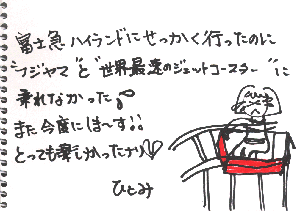 富士急ハイランドにせっかく行ったのに
"フジヤマ"と"世界最速のジェットコースター"に
乗れなかった
また今度にほーす!!
とっても楽しかったナリ♡
ひとみ